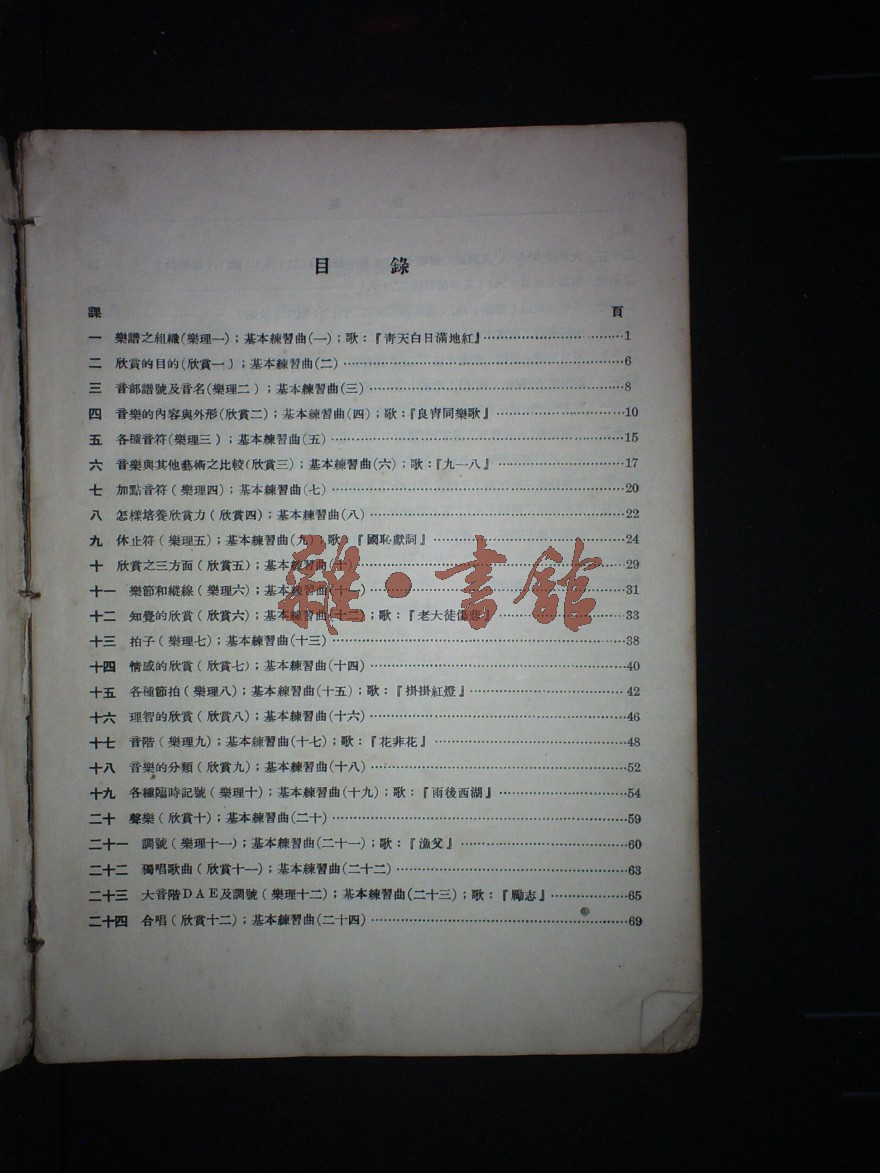 目錄
課 頁
一 樂譜之組織(樂理一);基本練習曲(一);歌:『靑天白日滿地紅』…………1
二 欣賞的目的(欣賞一);基本練習曲(二)…………6
三 音部譜號及音名(樂理二);基本練習曲(三)…………8
四 音樂的內容與外形(欣賞二);基本練習曲(四);歌:『良宵同樂歌』…………10
五 各種音符(樂理三);基本練習曲(五)…………15
六 音樂與其他藝術之比較(欣賞三);基本練習曲(六);歌:『九一八』…………17
七 加點音符(樂理四);基本練習曲(七)…………20
八 怎樣培養欣賞力(欣賞四);基本練習曲(八)…………22
九 休止符(樂理五);基本練習曲(九);歌:『國恥獻詞』…………24
十 欣賞之三方面(欣賞五);基本練習曲(十)…………29
十一 樂節和縱線(樂理六);基本練習曲(十一)…………31
十二 知覺的欣賞(欣賞六);基本練習曲(十二);歌:『老大徒傷悲』…………33
十三 拍子(樂理七);基本練習曲(十三)…………38
十四 情感的欣賞(欣賞七);基本練習曲(十四)…………40
十五 各種節拍(樂理八);基本練習曲(十五);歌:『掛掛紅燈』…………42
十六 理智的欣賞(欣賞八);基本練習曲(十六)…………46
十七 音階(樂理九);基本練習曲(十七);歌:『花非花』…………48
十八 音樂的分類(欣賞九);基本練習曲(十八)…………52
十九 各種臨時記號(樂理十);基本練習曲(十九);歌:『雨後西湖』…………54
二十 聲樂(欣賞十);基本練習曲(二十)…………59
二十一 調號(樂理十一);基本練習曲(二十一);歌:『漁父』…………60
二十二 獨唱歌曲(欣賞十一);基本練習曲(二十二)…………63
二十三 大音階DAE及調號(樂理十二);基本練習曲(二十三);歌:『勵志』…………65
二十四 合唱(欣賞十二);基本練習曲(二十四)…………69
雜·書館